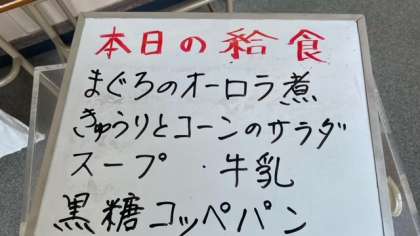 本日の給食
まぐろのオーロラ煮
きゅうりとコーンのサラダ
スープ ・牛乳
黒糖コッペパン